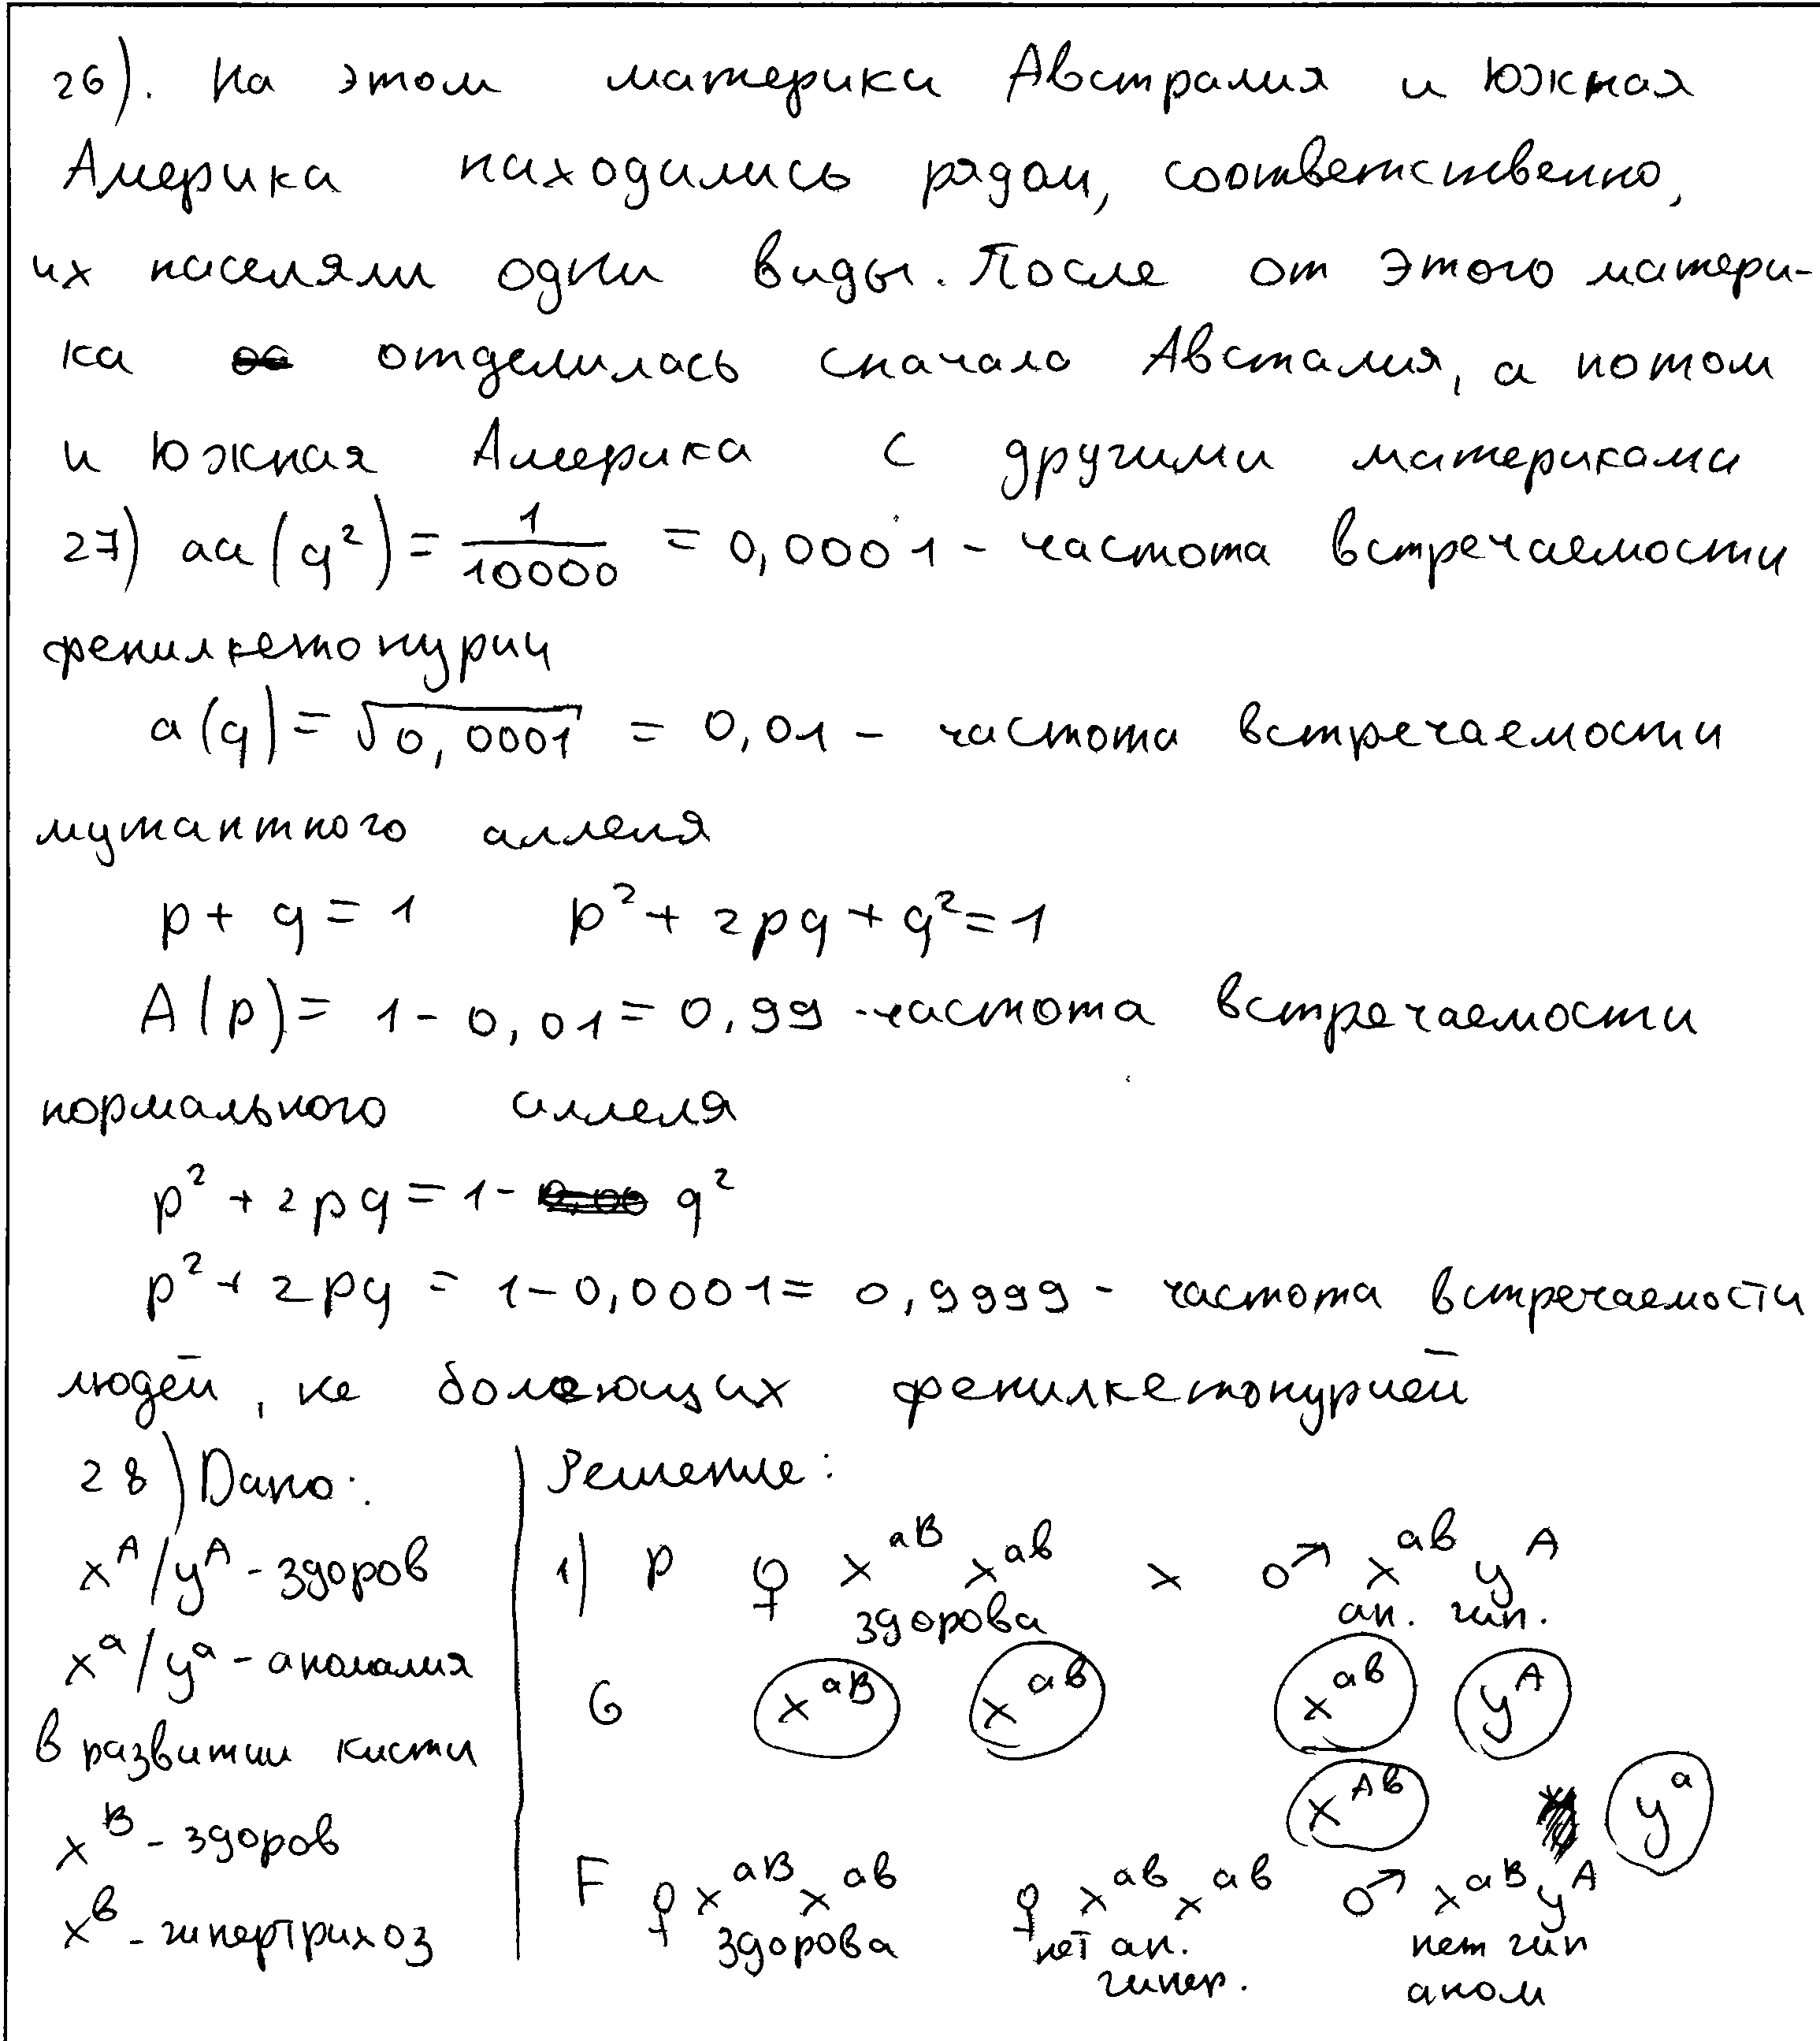 26). На этом материки Австралия и Южная
Америка находились рядом, соответственно,
их населяли одни виды. После от этого матери-
ка отделилась сначала Австалия, а потом
и Южная Америка с другими материками
27) aa(q²) = 1/10000 = 0,0001 - частота встречаемости
фенилкетонурии
a(q) = √0,0001 = 0,01 - частота встречаемости
мутантного аллеля
p + q = 1 p² + 2pq + q² = 1
A(p) = 1 - 0,01 = 0,99 - частота встречаемости
нормального аллеля
p² + 2pq = 1 - q²
p² + 2pq = 1 - 0,0001 = 0,9999 - частота встречаемости
людей, не болеющих фенилкетонурией
28) Дано:
x^A/y^A - здоров
x^a/y^a - аномалия
в развитии кисти
x^B - здоров
x^в - гипертрихоз
Решение:
1) P ♀ x^aB x^aв × ♂ x^aв y^A
здорова ан. гип.
G x^aB x^aв x^aв y^A
x^Aв y^a
F ♀ x^aB x^aв ♀ x^aв x^aв ♂ x^aB y^A
здорова нет ан. нет гип
гипер. аном